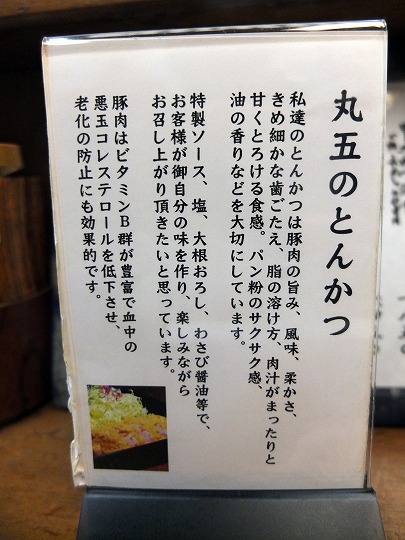 丸五のとんかつ
私達のとんかつは豚肉の旨み、風味、柔かさ、
きめ細かな歯ごたえ、脂の溶け方、肉汁がまったりと
甘くとろける食感。パン粉のサクサク感、
油の香りなどを大切にしています。
特製ソース、塩、大根おろし、わさび醤油等で、
お客様が御自分の味を作り、楽しみながら
お召し上がり頂きたいと思っています。
豚肉はビタミンB群が豊富で血中の
悪玉コレステロールを低下させ、
老化の防止にも効果的です。